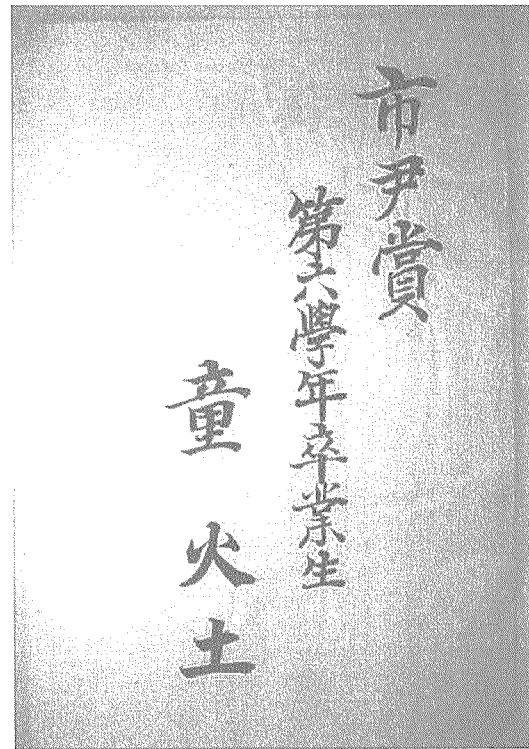 市尹賞
第六學年卒業生
童火土